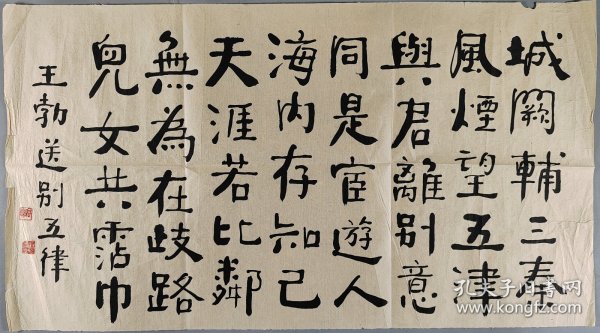 城闕輔三秦
風煙望五津
與君離别意
同是宦遊人
海内存知己
天涯若比鄰
無為在歧路
兒女共霑巾
王勃送别五律
孔夫子旧书网
www.kongfz.com